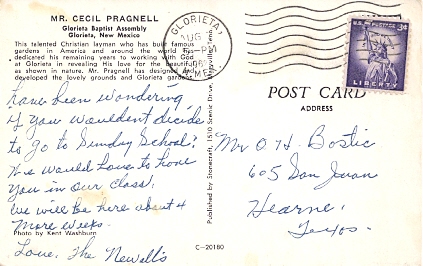 MR. CECIL PRAGNELL
Glorieta Baptist Assembly
Glorieta, New Mexico
This talented Christian layman who has built famous
gardens in America and around the world has
dedicated his remaining years to working with God
at Glorieta in revealing His love for the beautiful
as shown in nature. Mr. Pragnell has designed and
developed the lovely grounds and Glorieta gardens.
have been wondering
if you wouldn't decide
to go to Sunday School?
We would love to have
you in our class.
We will be here about 4
more weeks.
Photo by Kent Washburn
Love, The Newell's
C-20180
GLORIETA
AUG
PM
N. MEX.
U.S. POSTAGE
3¢
LIBERTY
POST CARD
ADDRESS
Mr O. H. Bostic
605 San Juan
Hearne,
Texas.